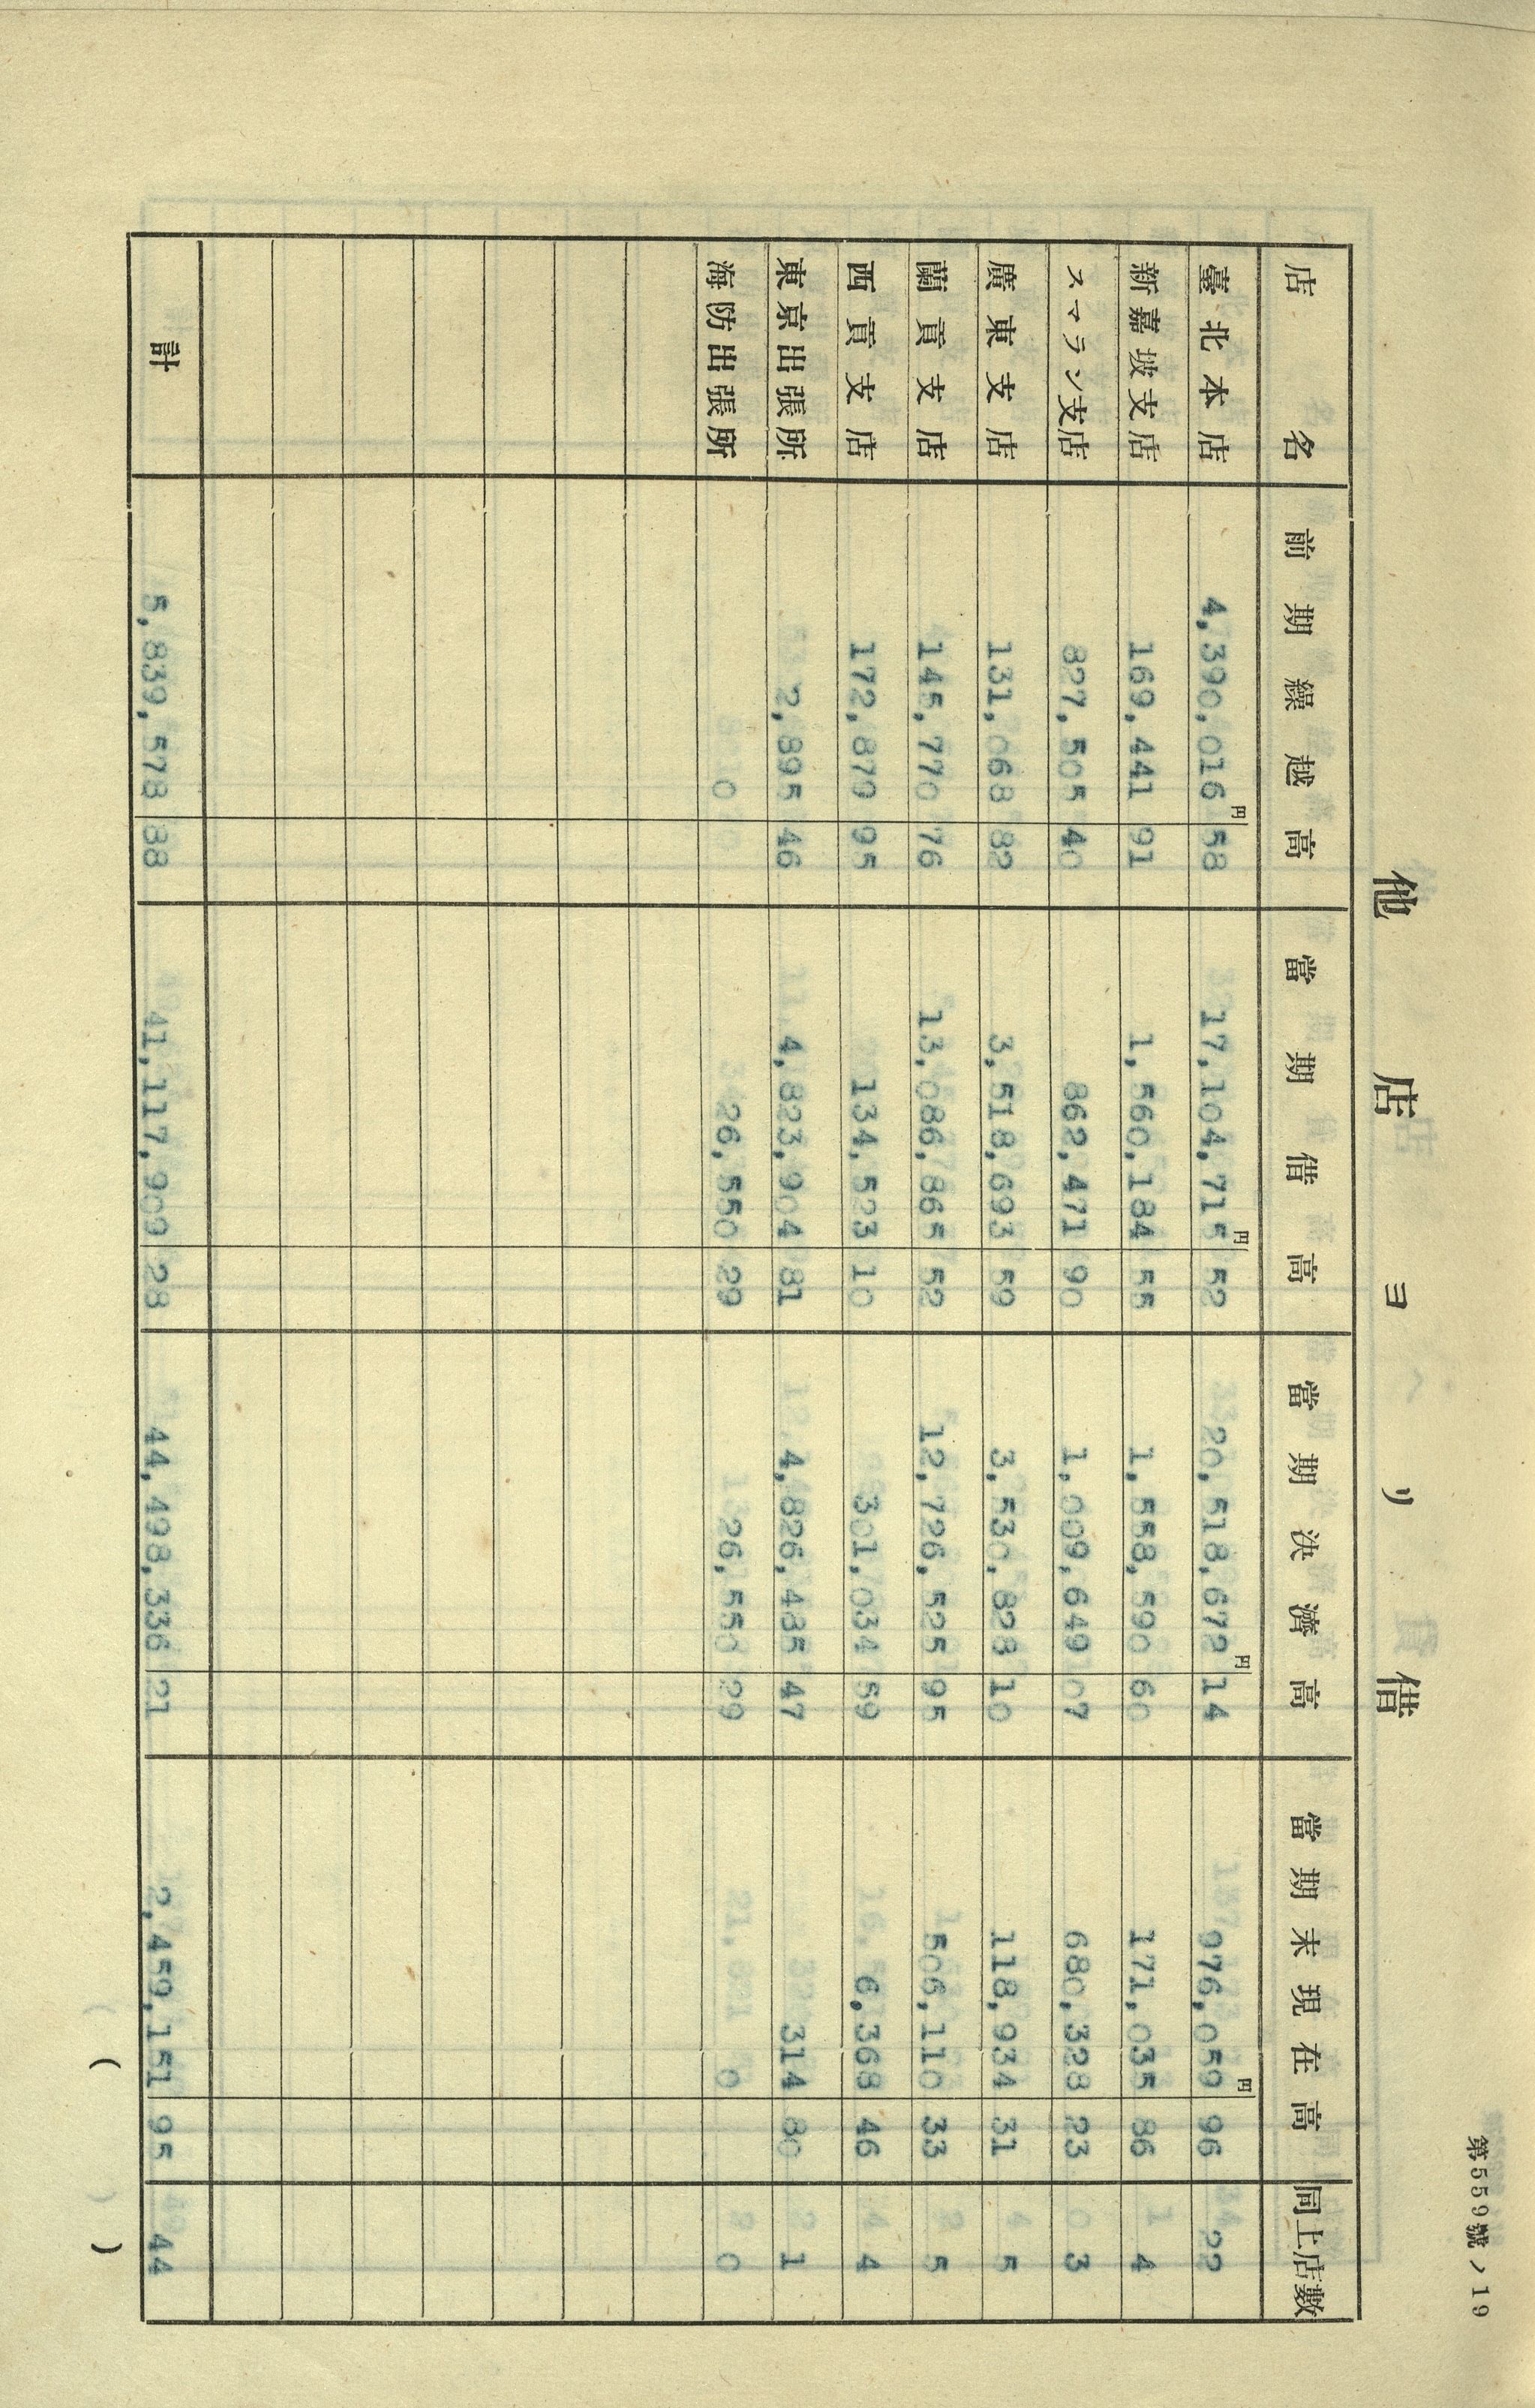 第559號ノ19
他店ヨリ借
店名 前期繰越高 當期借高 當期決濟高 當期末現在高 同上店數
円 円 円 円
臺北本店 4,390,016 58 17,104,715 52 20,518,672 14 976,059 96 22
新嘉坡支店 169,441 91 1,560,184 55 1,558,590 60 171,035 86 4
スマラン支店 827,505 40 862,471 90 1,009,649 07 680,328 23 3
廣東支店 131,068 82 3,518,693 59 3,530,828 10 118,934 31 5
蘭貢支店 145,770 76 13,086,865 52 12,726,525 95 506,110 33 5
西貢支店 172,879 95 134,523 10 301,034 59 6,368 46 4
東京出張所 2,895 46 4,823,904 81 4,826,485 47 314 80 1
海防出張所 0 26,550 29 26,550 29 0 0
計 5,839,578 88 41,117,909 28 44,498,336 21 2,459,151 95 44
( )